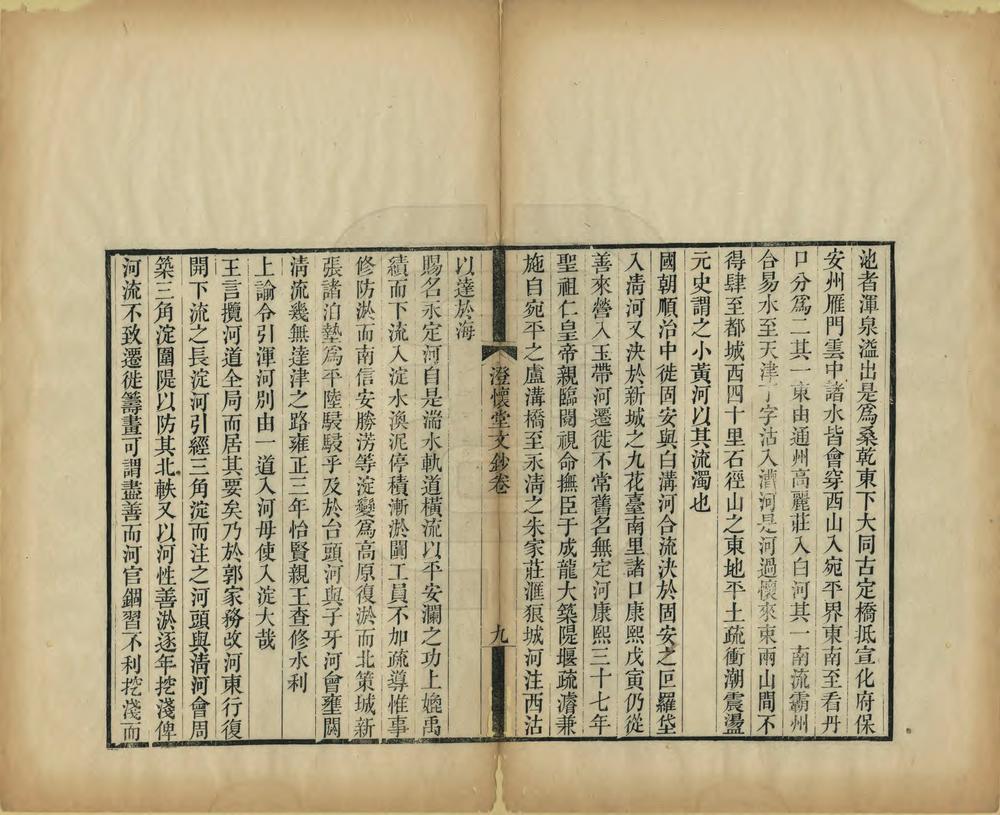 池者渾泉溢出是爲桑乾東下大同古定橋抵宣化府保
安州雁門雲中諸水皆會穿西山入宛平界東南至看丹
口分爲二其一東由通州高麗莊入白河其一南流霸州
合易水至天津丁字沽入漕河是河過懷來束兩山間不
得肆至都城西四十里石徑山之東地平土疏衝潮震盪
元史謂之小黃河以其流濁也
國朝順治中徙固安與白溝河合流決於固安之叵羅垡
入淸河又決於新城之九花臺南里諸口康熙戊寅仍從
善來營入玉帶河遷徙不常舊名無定河康熙三十七年
聖祖仁皇帝親臨閱視命撫臣于成龍大築隄堰疏濬兼
施自宛平之盧溝橋至永淸之朱家莊滙狼城河注西沽
澄懷堂文鈔卷 九
以達於海
賜名永定河自是湍水軌道橫流以平安瀾之功上媲禹
績而下流入淀水渙泥停積漸淤闕工員不加疏導惟事
修防淤而南信安勝淓等淀變爲高原復淤而北策城新
張諸泊墊爲平陸駸駸乎及於台頭河與子牙河會壅閼
淸流幾無達津之路雍正三年怡賢親王查修水利
上諭令引渾河別由一道入河毋使入淀大哉
王言攬河道全局而居其要矣乃於郭家務改河東行復
開下流之長淀河引經三角淀而注之河頭與淸河會周
築三角淀圍隄以防其北軼又以河性善淤逐年挖淺俾
河流不致遷徙籌畫可謂盡善而河官錮習不利挖淺而